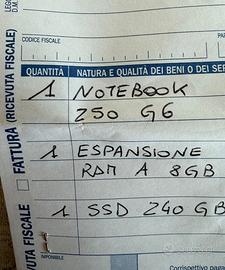 CODICE FISCALE
PAR
QUANTITÀ NATURA E QUALITÀ DEI BENI O DEI SER
1 NOTEBOOK
250 G6
1 ESPANSIONE
RAM A 8GB
1 SSD 240 GB
FATTURA (RICEVUTA FISCALE)
VUTA FISCALE
IMPONIBILE
Corrispettivo paga